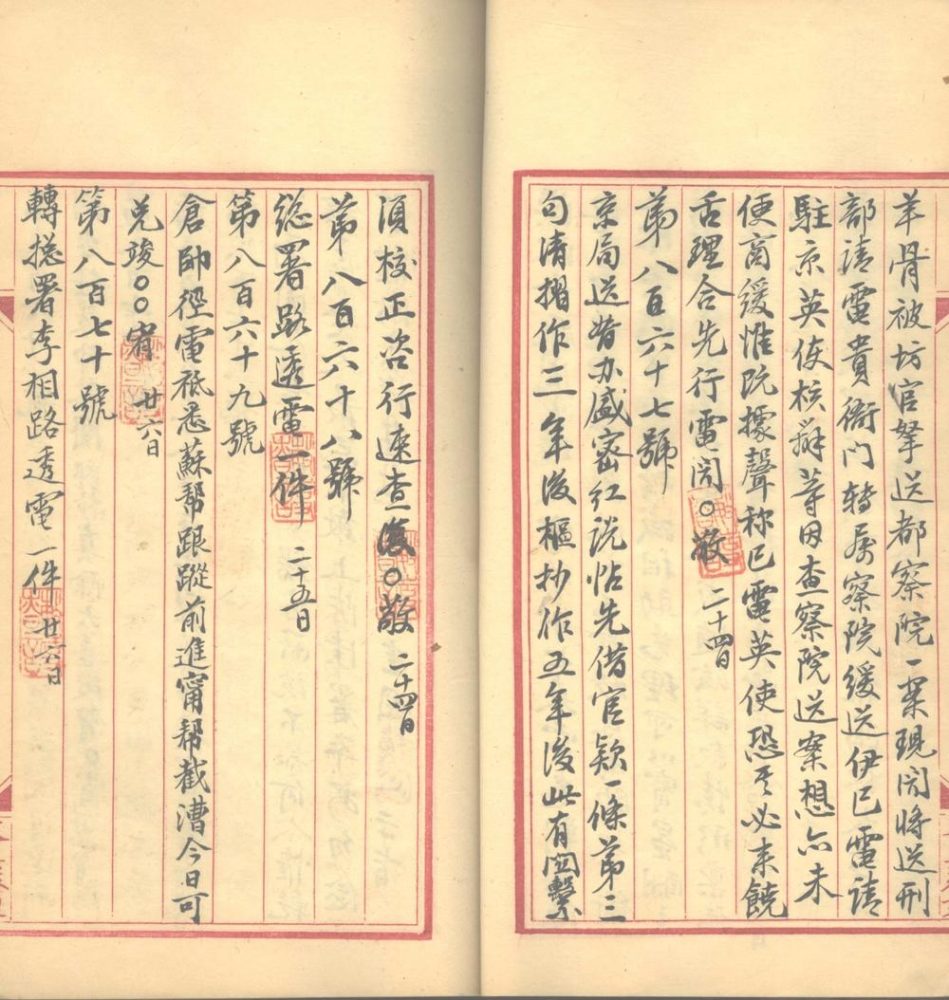 羊骨被坊官拏送都察院一案現聞將送刑
部請電貴衙门转属察院緩送伊已電請
駐京英使核辦等因查察院送案想亦未
便商緩惟既據聲稱已電英使恐其必来饒
舌理合先行電聞〇敬 二十四日
第八百六十七號
京局送昔办盛密红说帖先借官欵一條第三
句清摺作三年後樞抄作五年後此有關繫
須校正咨行速查復〇敬 二十四日
第八百六十八號
總署路透電一件 二十五日
第八百六十九號
倉帥徑電祗悉蘇帮跟蹤前進甯帮截漕今日可
兑竣〇〇宥 廿六日
第八百七十號
轉摠署李相路透電一件 廿六日